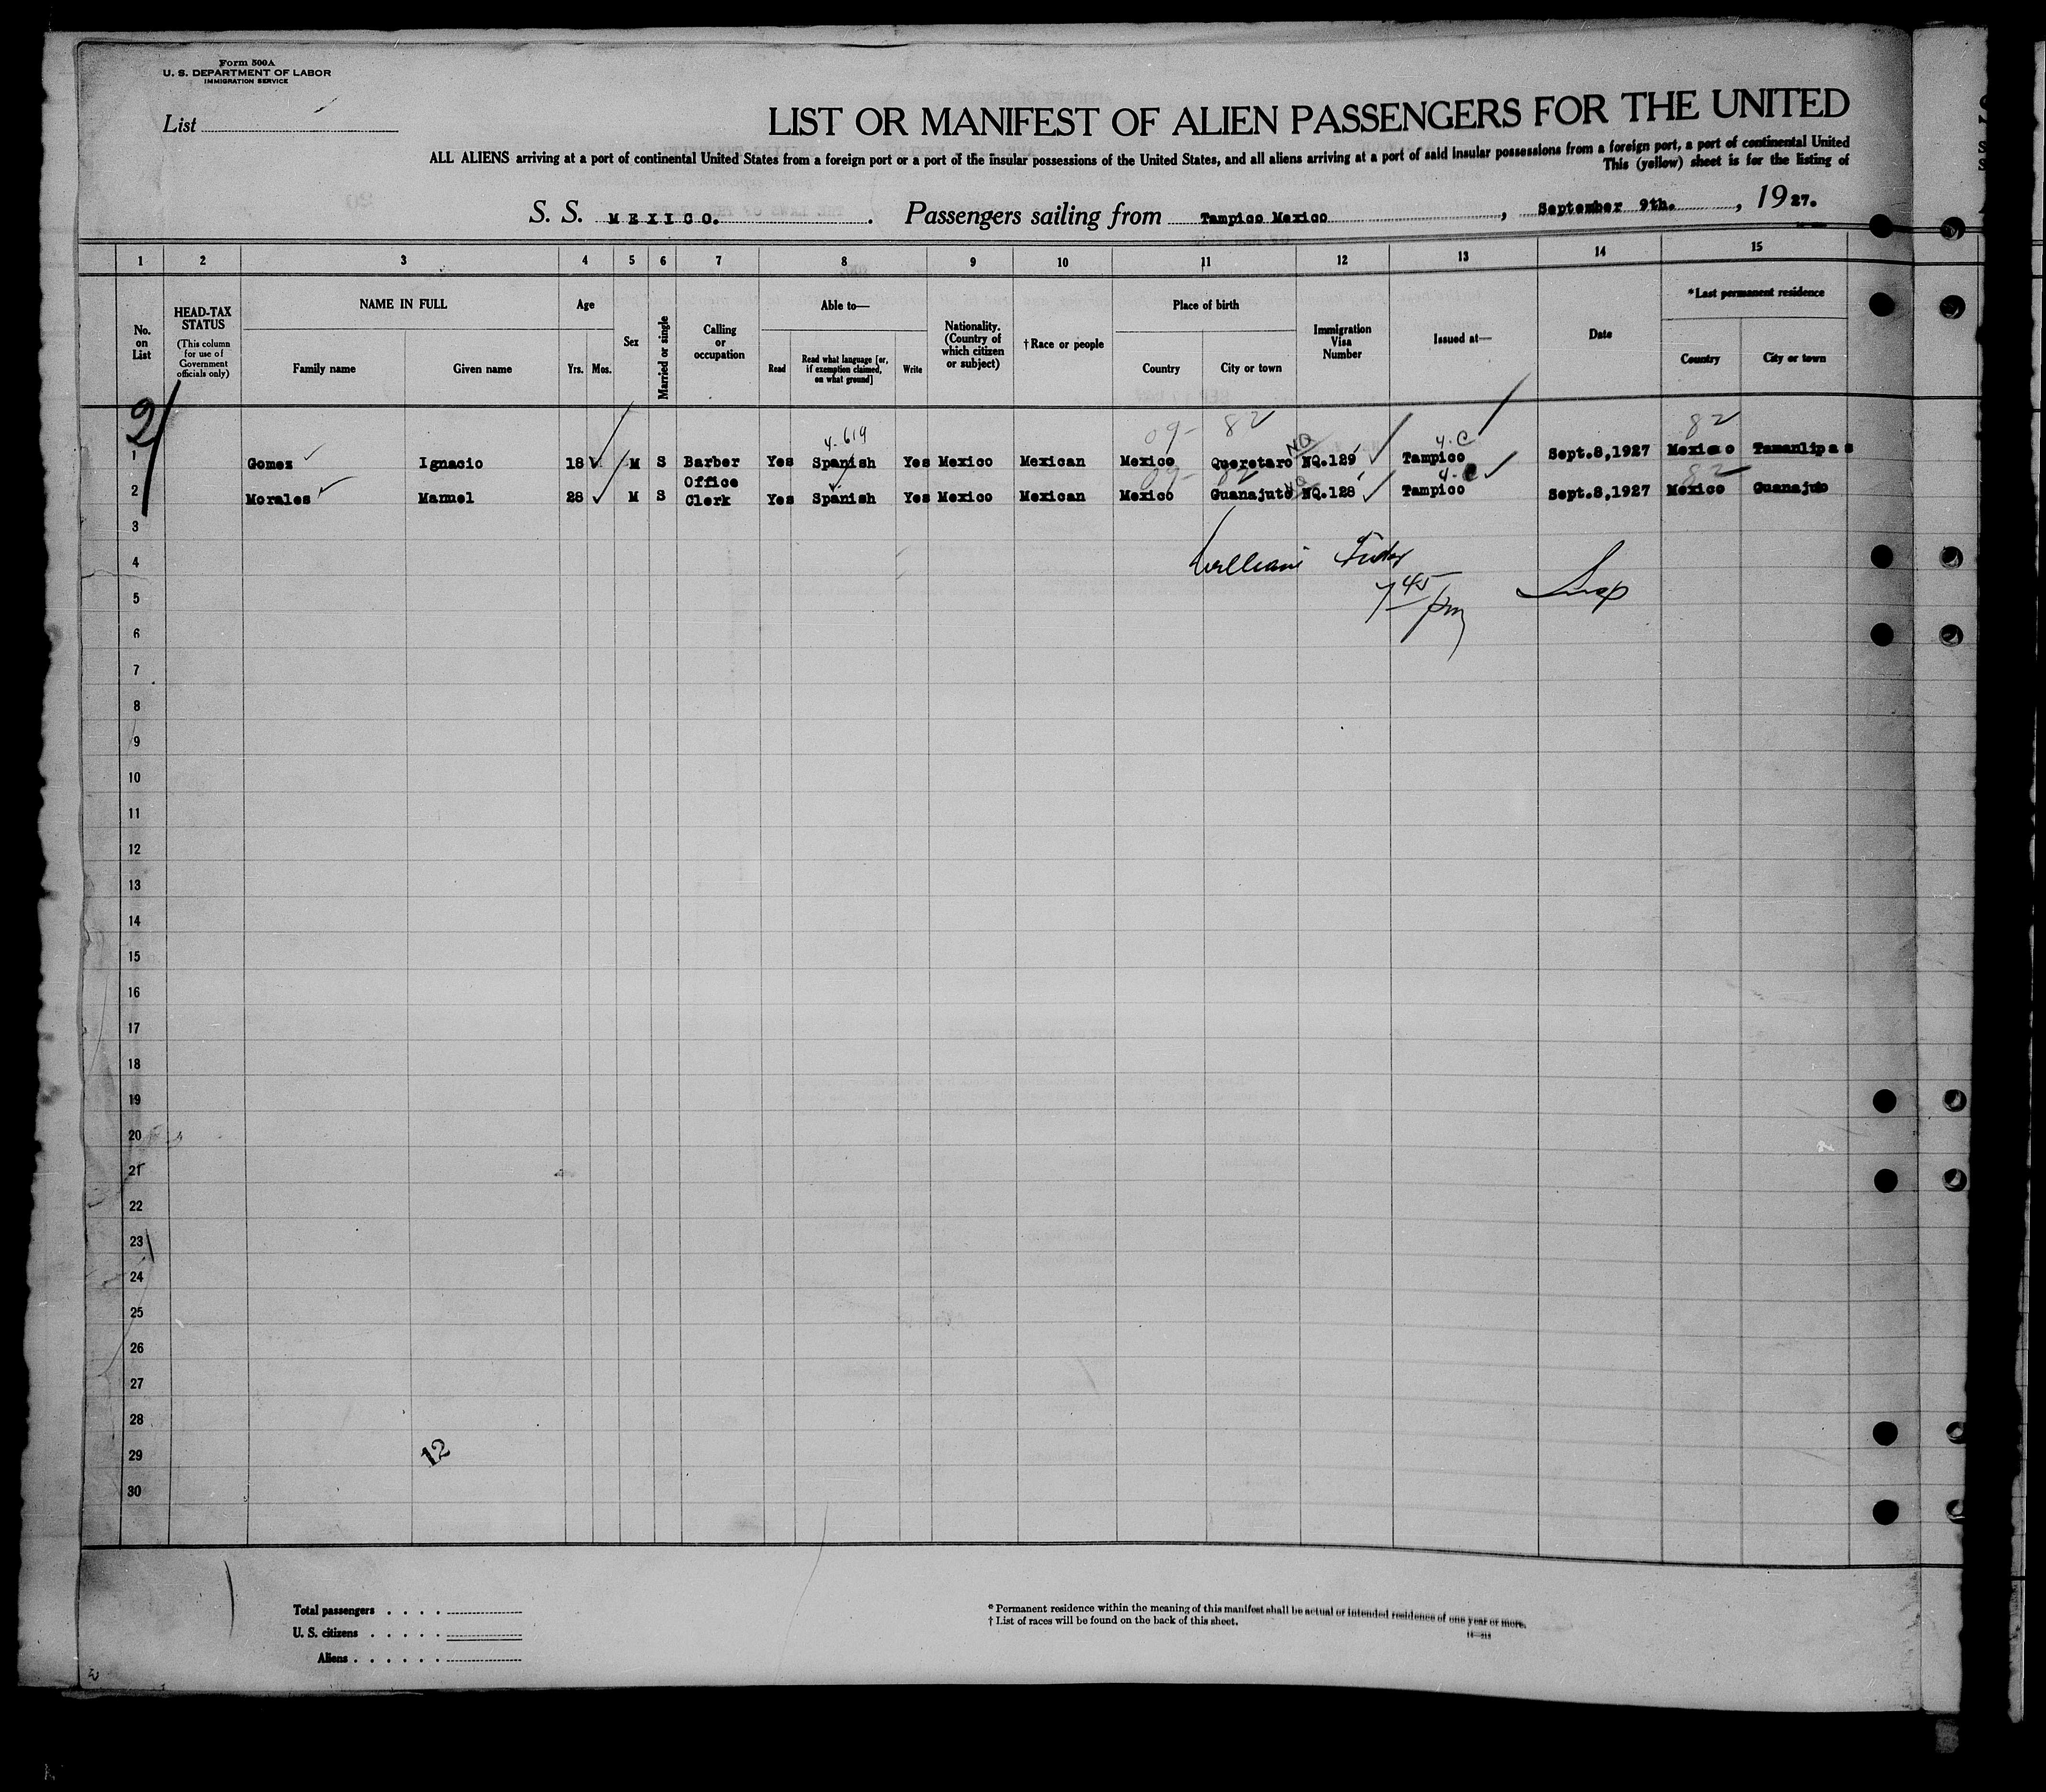 Form 500A
U. S. DEPARTMENT OF LABOR
IMMIGRATION SERVICE
List
LIST OR MANIFEST OF ALIEN PASSENGERS FOR THE UNITED
ALL ALIENS arriving at a port of continental United States from a foreign port or a port of the insular possessions of the United States, and all aliens arriving at a port of said insular possessions from a foreign port, a port of continental United
This (yellow) sheet is for the listing of
S. S. MEXICO. Passengers sailing from Tampico Mexico, September 9th., 1927.
1 2 3 4 5 6 7 8 9 10 11 12 13 14 15
No. on List
HEAD-TAX STATUS
(This column for use of Government officials only)
NAME IN FULL
Family name Given name
Age
Yrs. Mos.
Sex
Married or single
Calling or occupation
Able to—
Read
Read what language [or, if exemption claimed, on what ground]
Write
Nationality. (Country of which citizen or subject)
†Race or people
Place of birth
Country City or town
Immigration Visa Number
Issued at—
Date
*Last permanent residence
Country City or town
2
4-619
09- 82 NQ 4-C 82
1 Gomez Ignacio 18 M S Barber Yes Spanish Yes Mexico Mexican Mexico Queretaro NQ.129 Tampico Sept.8,1927 Mexico Tamanlipas
09- 82 NQ 4-C 82
2 Morales Manuel 28 M S Office Clerk Yes Spanish Yes Mexico Mexican Mexico Guanajuto NQ.128 Tampico Sept.8,1927 Mexico Guanajuto
3
4 William
5 7 45 pm Insp
6
7
8
9
10
11
12
13
14
15
16
17
18
19
20
21
22
23
24
25
26
27
28
29
30
12
Total passengers . . . .
U. S. citizens . . . . .
Aliens . . . . . .
* Permanent residence within the meaning of this manifest shall be actual or intended residence of one year or more.
† List of races will be found on the back of this sheet.